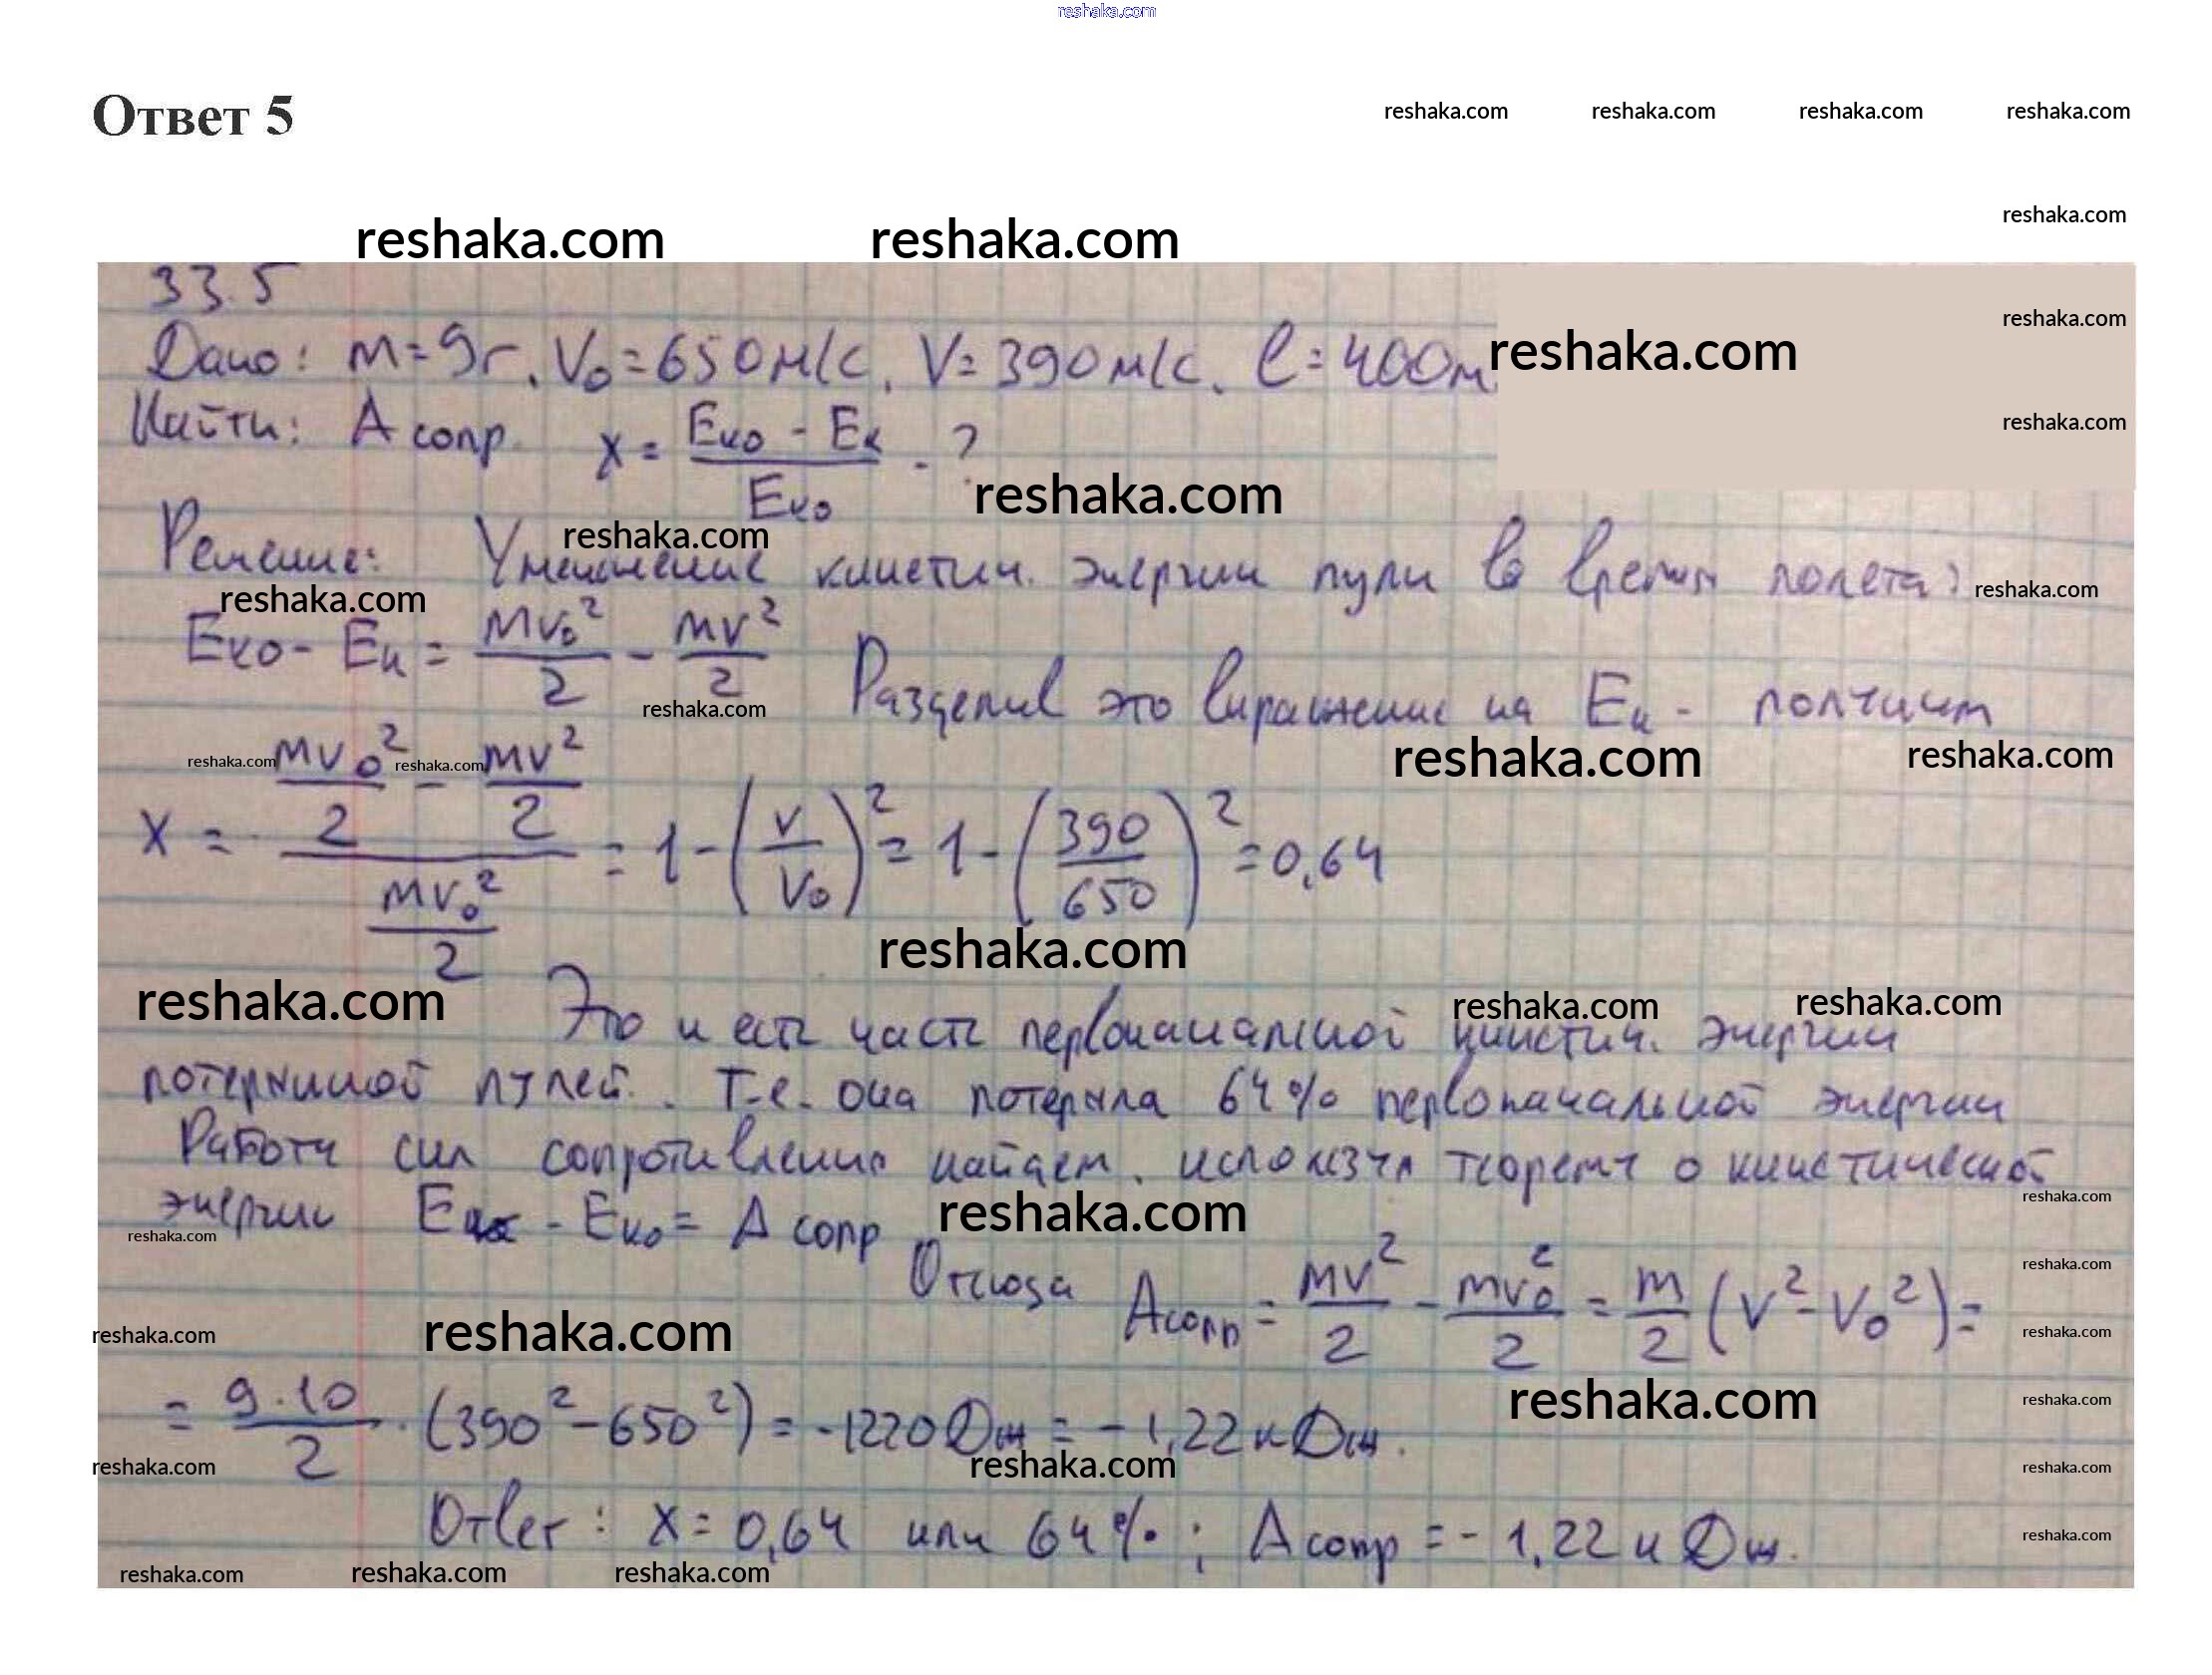 reshaka.com
Ответ 5
reshaka.com reshaka.com reshaka.com reshaka.com
reshaka.com
reshaka.com reshaka.com
33.5
reshaka.com
Дано: m=9г, V₀=650м/с, V=390м/с, l=400м.
reshaka.com
reshaka.com
Найти: A сопр. x = (Eко - Eк)/Eко - ?
reshaka.com
reshaka.com
Решение: Уменьшение кинетич. энергии пули во время полета:
reshaka.com
reshaka.com
Eко - Eк = mv₀²/2 - mv²/2 Разделив это выражение на Eк - получим
reshaka.com
reshaka.com reshaka.com
reshaka.com reshaka.com
x = (mv₀²/2 - mv²/2)/(mv₀²/2) = 1-(v/v₀)² = 1-(390/650)² = 0,64
reshaka.com
reshaka.com reshaka.com reshaka.com
Это и есть часть первоначальной кинетич. энергии
потерянной пулей. Т.е. она потеряла 64% первоначальной энергии
Работу сил сопротивления найдем, используя теорему о кинетической
reshaka.com
энергии Eк - Eко = A сопр
reshaka.com
reshaka.com
reshaka.com
Отсюда Aсопр = mv²/2 - mv₀²/2 = m/2 (v²-v₀²) =
reshaka.com reshaka.com reshaka.com
reshaka.com reshaka.com
= 9·10/2 · (390²-650²) = -1220 Дж = -1,22 кДж.
reshaka.com reshaka.com reshaka.com
Ответ: x=0,64 или 64%; Aсопр = -1,22 кДж.
reshaka.com
reshaka.com reshaka.com reshaka.com